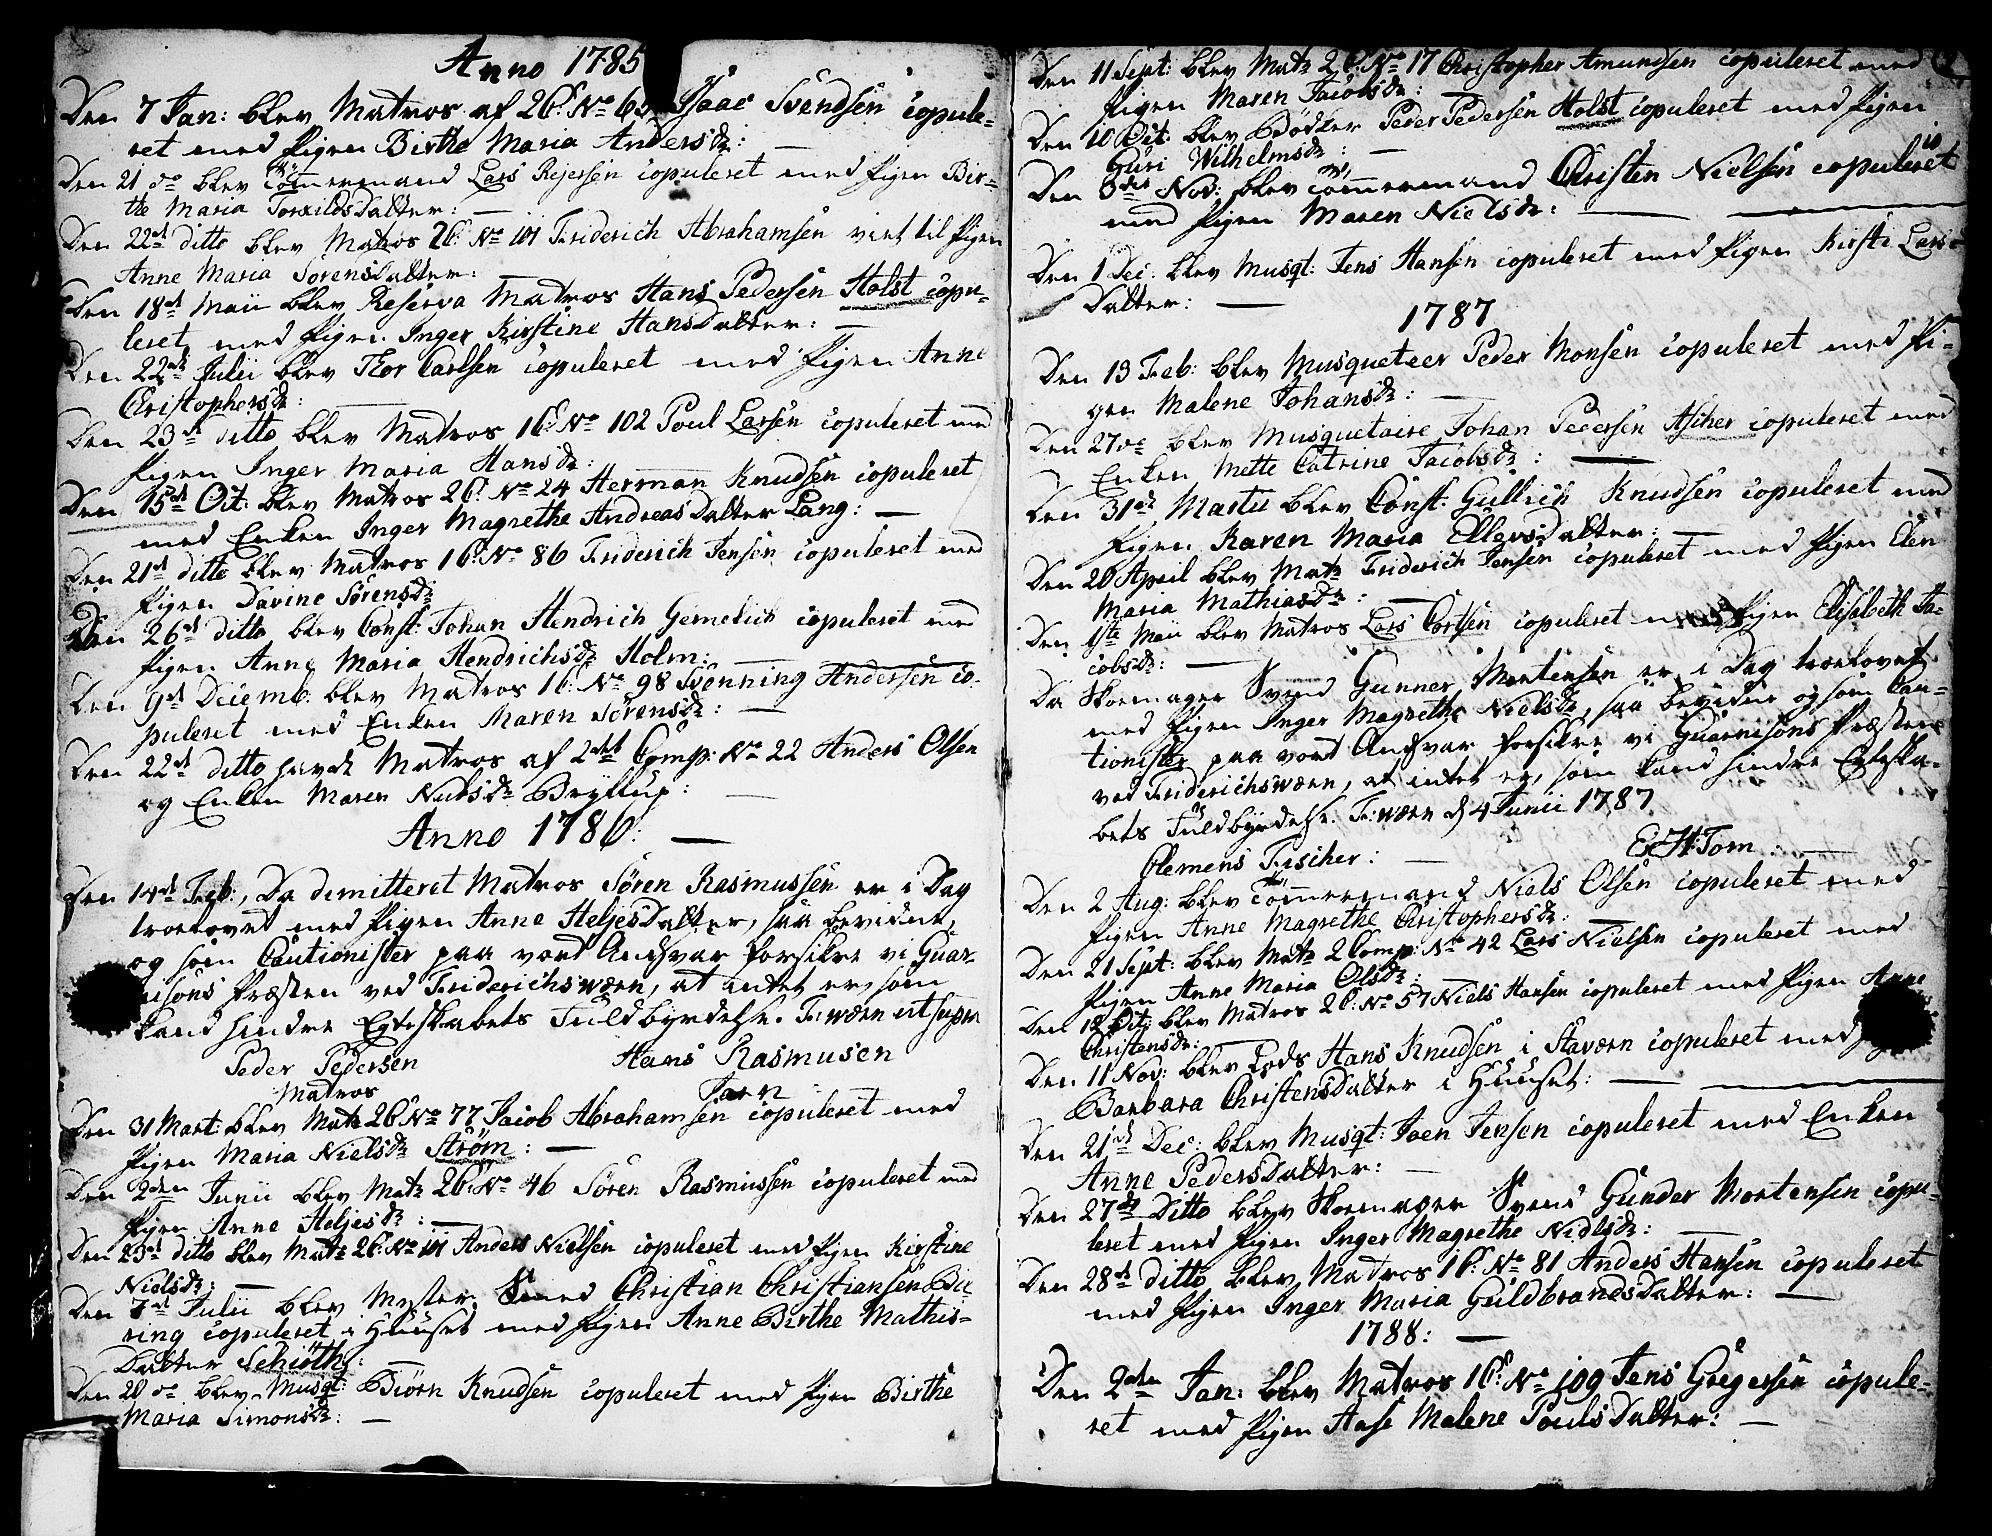 Anno 1785
Den 7 Jan: blev Matros af 2C. No 65 Isaac Svendsen copule-
ret med Pigen Birthe Maria Andersdr: —
Den 21 do blev Tømmermand Lars Rejersen copuleret med Pigen Bir-
the Maria TorkildsDatter: —
Den 22de ditto blev Matros 2C. No 101 Friderich Abrahamsen viet til Pigen
Anne Maria SørensDatter: —
Den 18de Maii blev Reserva Matros Hans Pedersen Holst copu-
leret med Pigen Inger Kirstine HansDatter: —
Den 22de Julii blev Thor Carlsen copuleret med Pigen Anne
Christophersdr: —
Den 23de ditto blev Matros 1C. No 102 Poul Larsen copuleret med
Pigen Inger Maria Hansdr: —
Den 15de Oct: blev Matros 2C. No 24 Herman Knudsen copuleret
med Enken Inger Magrethe AndreasDatter Lang: —
Den 21de ditto blev Matros 1C. No 86 Friderich Jensen copuleret med
Pigen Davine Sørensdr
Den 26de ditto blev Const: Johan Hendrich Gemelich copuleret med
Pigen Anne Maria Hendrichsdr Holm: —
Den 9de Decemb: blev Matros 1C. No 98 Svenning Andersen co-
puleret med Enken Maren Sørensdr: —
Den 22de ditto havde Matros af 2det Comp: No 22 Anders Olsen
og Enken Maren Nubsdr Bryllup: —
Anno 1786: —
Den 14de Feb:, Da dimitteret Matros Sören Rasmussen er i Dag
troelovet med Pigen Anne HeljesDatter, saa bevidne,
og som Cautionister paa vort Andsvar forsikre vi Guar-
nisons Præsten ved Friderichswærn, at intet er, som
kand hindre Egteskabets Fuldbyrdelse. Fr:wærn ut supra
Peder Pedersen Hans Rasmusen
Matros
Den 31 Mart: blev Matr 2C No 77 Jacob Abrahamsen copuleret med
Pigen Maria Nielsdr Strøm: —
Den 2den Junii blev Matr 2C. No 46 Sören Rasmussen copuleret med
Pigen Anne Heljesdr: —
Den 23de ditto blev Matr 2C. No 101 Anders Nielsen copuleret med Pigen Kirstine
Nielsdr: —
Den 7de Julii blev Mester Smed Christian Christiansen Bie
ring copuleret i Huuset med Pigen Anne Birthe Mathis-
Datter Schiøth:
Den 20 do blev Musqt: Biørn Knudsen copuleret med Pigen Birthe
Maria Simonsdr: —
Den 11 Sept: blev Matr 2C. No 17 Christopher Amundsen copuleret med
Pigen Maren Jacobsdr:
Den 10 Oct: blev Bødker Peder Pedersen Holst copuleret med Pigen
Guri Wilhelmsdr: —
Den 3die Nov: blev Tømmermand Christen Nielsen copuleret
med Pigen Maren Nielsdr: —
Den 1 Dec: blev Musqt: Jens Hansen copuleret med Pigen Kirsti Lars-
Datter: —
1787
Den 13 Feb: blev Musqueteer Peder Monsen copuleret med Pi-
gen Malene Johansdr: —
Den 27 do blev Musquetaire Johan Pedersen Ascher copuleret med
Enken Mette Catrine Jacobsdr: —
Den 31de Martii blev Const: Gullich Knudsen copuleret med
Pigen Karen Maria EllevsDatter: —
Den 20 April blev Matr Friderich Jensen copuleret med Pigen Elen
Maria Mathiasdr: —
Den 1ste Maii blev Matros Lars Cortsen copuleret med Pigen Elisabeth Ja-
cobsdr: —
Da Skoemager Svend Gunner Mortensen er i Dag troelovet
med Pigen Inger Magrethe Nielsdr, saa bevidne og som Cau-
tionister paa vort Andsvar forsikre vi Guarnisons Præsten
ved Friderichswærn, at intet er, som kand hindre Egteska-
bets Fuldbyrdelse. Fr:wærn d 4 Junii 1787
Clemens Fischer: — E H Tom: —
Den 2 Aug: blev Tømmermand Niels Olsen copuleret med
Pigen Anne Magrethe Christophersdr: —
Den 21 Sept: blev Matr 2 Comp: No 42 Lars Nielsen copuleret med
Pigen Anne Maria Olsdr:
Den 12 Oct: blev Matros 2C. No 57 Niels Hansen copuleret med Pigen Anne
Christensdr: —
Den 11 Nov: blev Lods Hans Knudsen i Stavern copuleret med
Barbara ChristensDatter i Huuset: —
Den 21de Dec: blev Musqt: Joen Jensen copuleret med Enken
Anne PedersDatter: —
Den 27de Ditto blev Skoemager Svend Gunder Mortensen copu-
leret med Pigen Inger Magrethe Nielsdr: —
Den 28de ditto blev Matros 1C. No 81 Anders Hansen copuleret
med Pigen Inger Maria GuldbrandsDatter: —
1788: —
Den 2den Jan: blev Matros 1C. No 109 Jens Gregersen copule-
ret med Pigen Aase Malene PoulsDatter: —